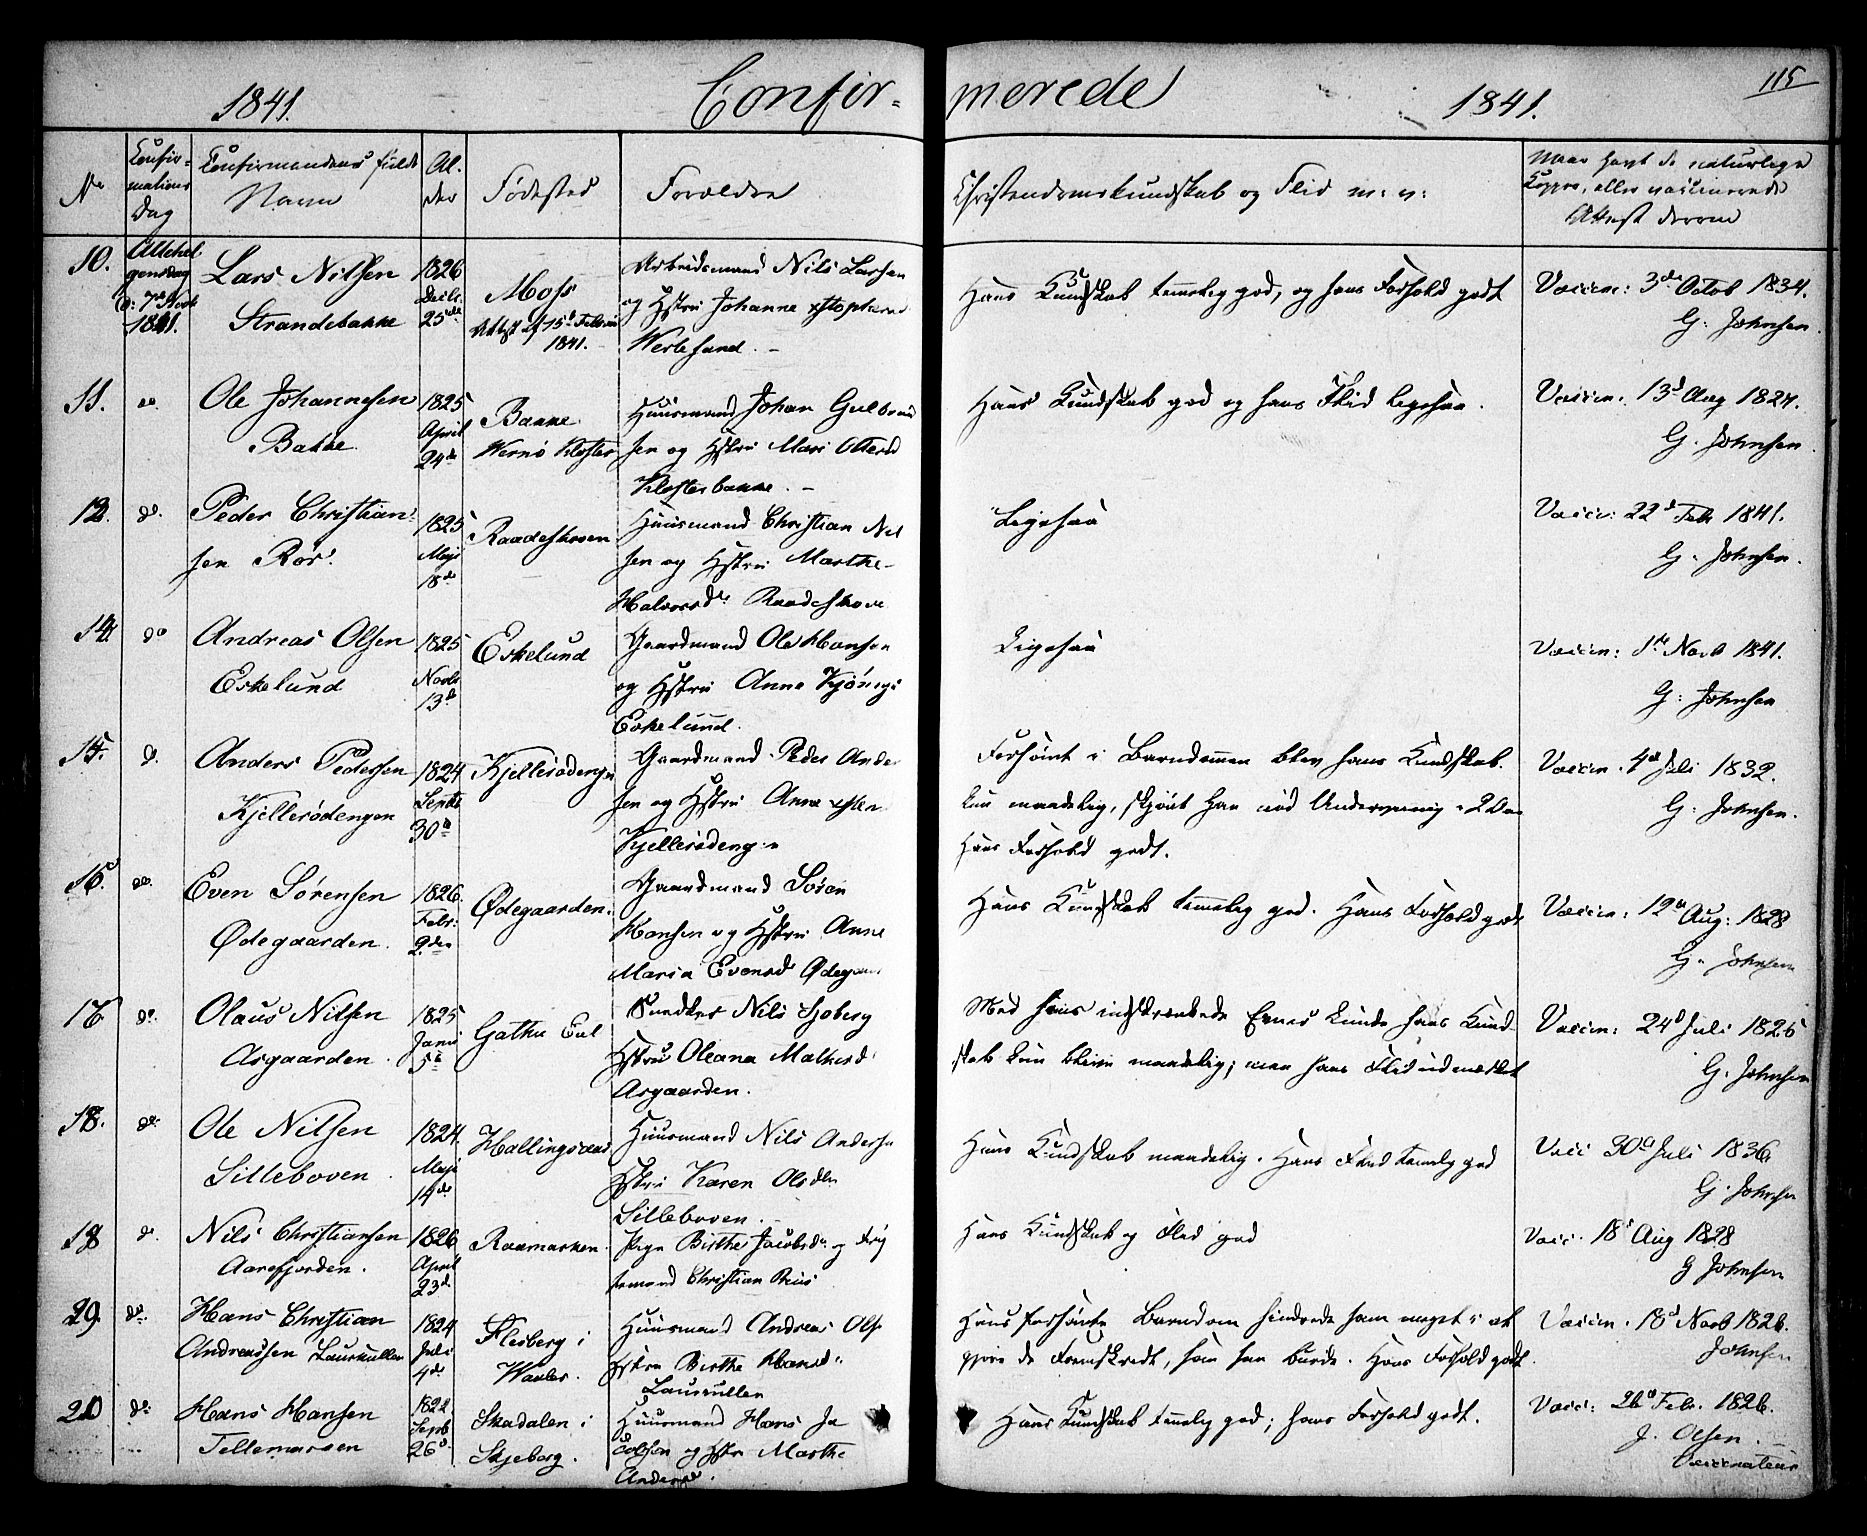 115
1841. Confir= merede 1841.
No
Confir=
mations
Dag
Confirmandens fulde
Navn
Al.
der
Fødested
Forældre
Christendomskundskab og Flid m: v:
Naar havt de naturlige
Kopper, eller vaccinerede
Attest derom
10.
Allehel
gensdag
d: 7de Novb
1841.
Lars Nilsen
Strandebakke
1826
Decbr.
25de
Moss
Attest af 15d Febru
1841.
Arbeidsmand Nils Larsen
og Hstru Johanne
Werlesand. –
Hans Kundskab temmelig god, og hans Forhold godt
Vaccin: 3de Octob 1834.
G. Johnsen.
11.
do.
Ole Johannesen
Bakke
1825
April
24de
Bakke
Wernø Kloster
Huusmand Johan Gulbrand
sen og Hstru Mari Ottersd
Klosterbakke. –
Hans Kundskab god og hans Flid ligesaa.
Vaccin. 13d Aug 1827.
G. Johnsen.
12.
do.
Peder Christian=
sen Rør.
1825
Maji
18de
Raadeskoven
Huusmand Christian Nil
sen og Hstru Marthe
Halvorsdr Raadeskove
Ligesaa
Vaccin: 22d Feb 1841.
G. Johnsen.
14.
do
Andreas Olsen
Eskelund
1825
Novb
13de
Eskelund
Gaardmand Ole Hansen
og Hstru Anne
Eskelund.
Ligesaa
Vaccin: 1ste Novb 1841.
G: Johnsen
15.
d.
Anders Pedersen
Kjellerødengen
1824
Septb
30te
Kjellerødengen
Gaardmand Peder Ander
sen og Hstru Anne
Kjellerødeng:n
Forsømt i Barndommen blev hans Kundskab
kun maadelig, skjønt han nød Underviisning i 2
Hans Forhold godt.
Vaccin. 4d Juli 1832.
G. Johnsen.
16.
do.
Even Sørensen
Ødegaarden.
1826.
Febr.
2den
Ødegaarden.
Gaardmand Søren
Hansen og Hstru Anne
Maria Evensd Ødegaar
Hans Kundskab temmelig god. Hans Forhold godt
Vaccin: 12te Aug: 1828
G. Johnsen
17
do.
Olaus Nilsen
Asgaarden.
1825
Janu
5te
Gathu Eal
Snedker Nils Sjøberg
Hstru Oleana
Asgaarden.
Med hans indskrænkede Evner kunde hans Kund=
skab kun blive maadelig; men hans Flid udmærket
Vaccin: 24d Juli 1825
G. Johnsen
18.
do.
Ole Nilsen
Silleboven.
1824.
Maji
14de
Hallingsrød
Huusmand Nils Andersen
Hstru Karen Olsdtr
Silleboven.
Hans Kundskab maadelig. Hans Flid temlig god
Vacc 30te Juli 1836
G. Johnsen
18
do.
Nils Christiansen
Aarefjorden.
1826
April
23d
Raamarken.
Pige Birthe Jacobsdr og
Christian
Hans Kundskab og Flid god
Vacc. 18d Aug 1828
G Johnsen
29.
do.
Hans Christian
Andreassen Laurkullen
1824
Juli
4de
Flesberg i
Waaler.
Huusmand Andreas Ols
Hstru Birthe Hansd.
Laurkullen
Hans forsømte Barndom hindrede ham meget i at
gjøre de Fremskridt, som han burde. Hans Forhold godt.
Vaccin. 18d Novb 1826.
Johnsen
20
do.
Hans Hansen
Tellemarken
1822.
Septb
26d
Skadalen i
Skjeberg.
Huusmand Hans Ja
cobsen og Hstru Marthe
Andersd.
Hans Kundskab temmelig god; hans Forhold godt.
Vacc: 26d Feb. 1826.
J. Olsen
Vaccinateur